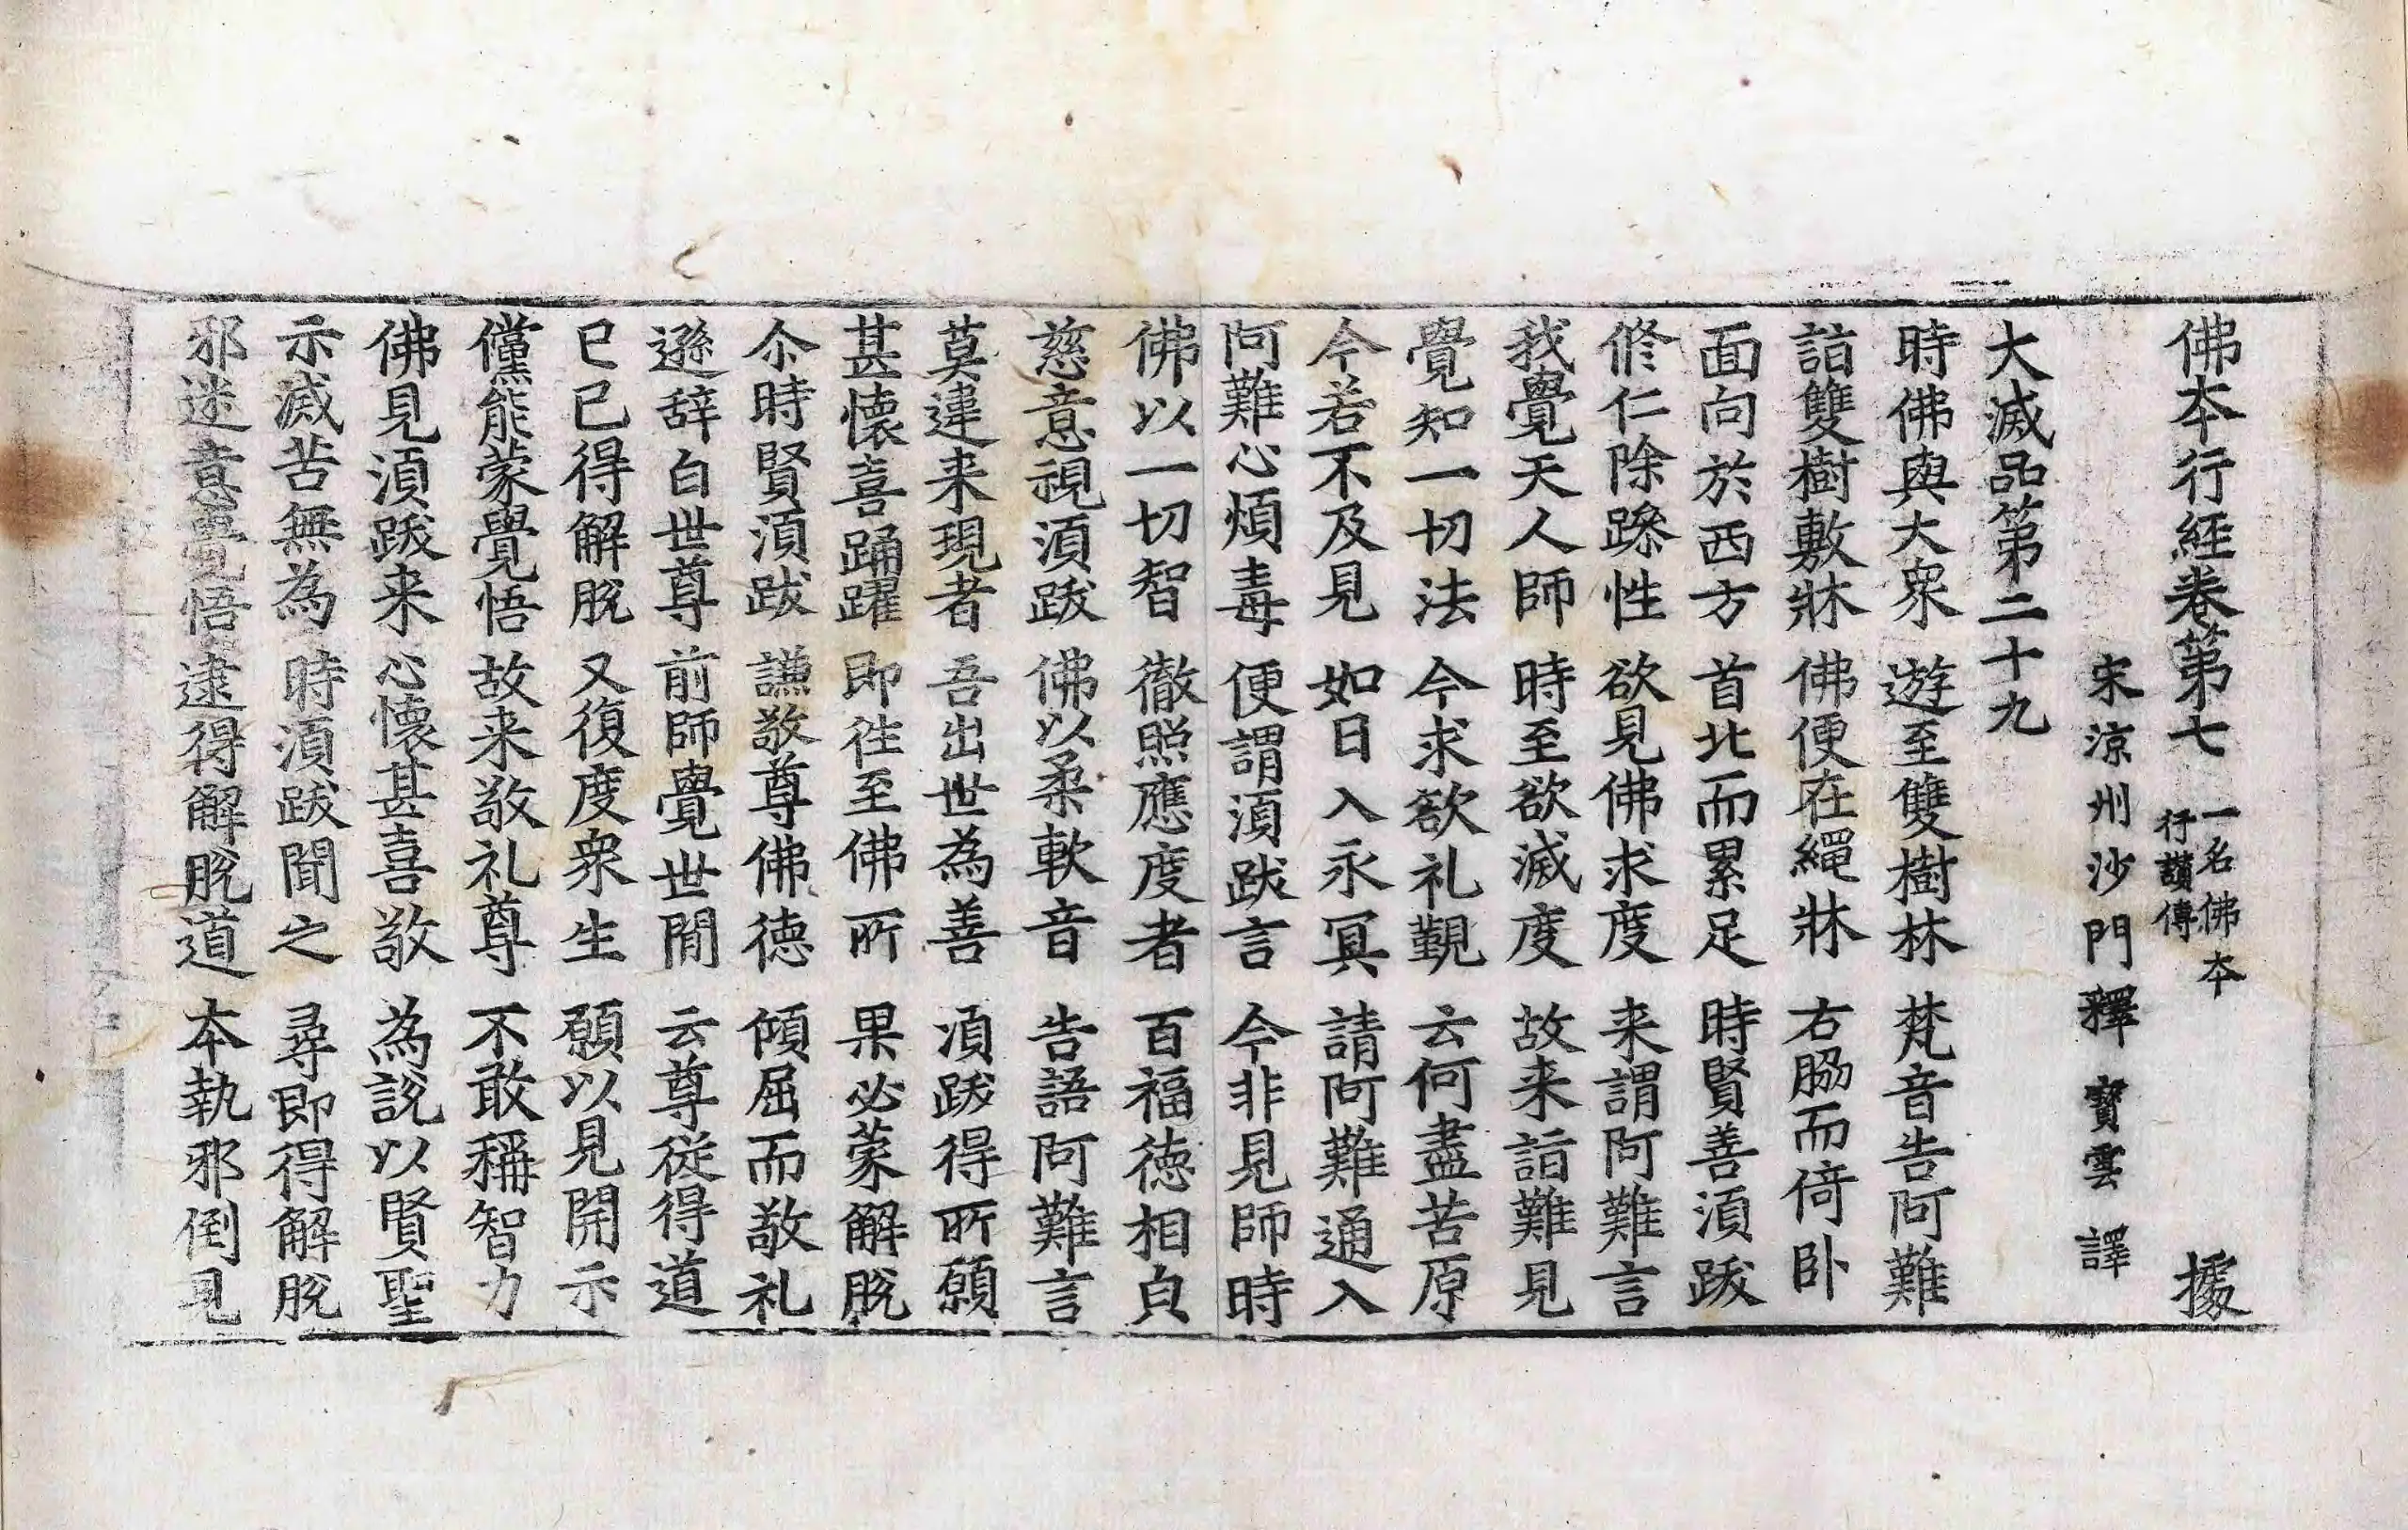 佛本行經卷第七 一名佛本行讃傳 㩀
宋涼州沙門釋寶雲譯
大滅品第二十九
時佛與大衆 遊至雙樹林 梵音告阿難
詣雙樹敷牀 佛便在繩牀 右脇而倚卧
面向於西方 首北而累足 時賢善湏跋
修仁除躁性 欲見佛求度 来謂阿難言
我覺天人師 時至欲滅度 故来詣難見
覺知一切法 今求欲礼覲 云何盡苦原
今若不及見 如日入永冥 請阿難通入
阿難心煩毒 便謂湏跋言 今非見師時
佛以一切智 徹照應度者 百福徳相貞
慈意視湏跋 佛以柔軟音 告語阿難言
莫違来現者 吾出世為善 湏跋得所願
甚懷喜踊躍 即往至佛所 果必蒙解脫
尒時賢湏跋 謙敬尊佛徳 傾屈而敬礼
遜辞白世尊 前師覺世間 云尊從得道
已已得解脫 又復度衆生 願以見開示
儻能蒙覺悟 故来敬礼尊 不敢稱智力
佛見湏跋来 心懷甚喜敬 為說以賢聖
示滅苦無為 時湏跋聞之 尋即得解脫
邪迷意覺悟 逮得解脫道 本執邪倒見